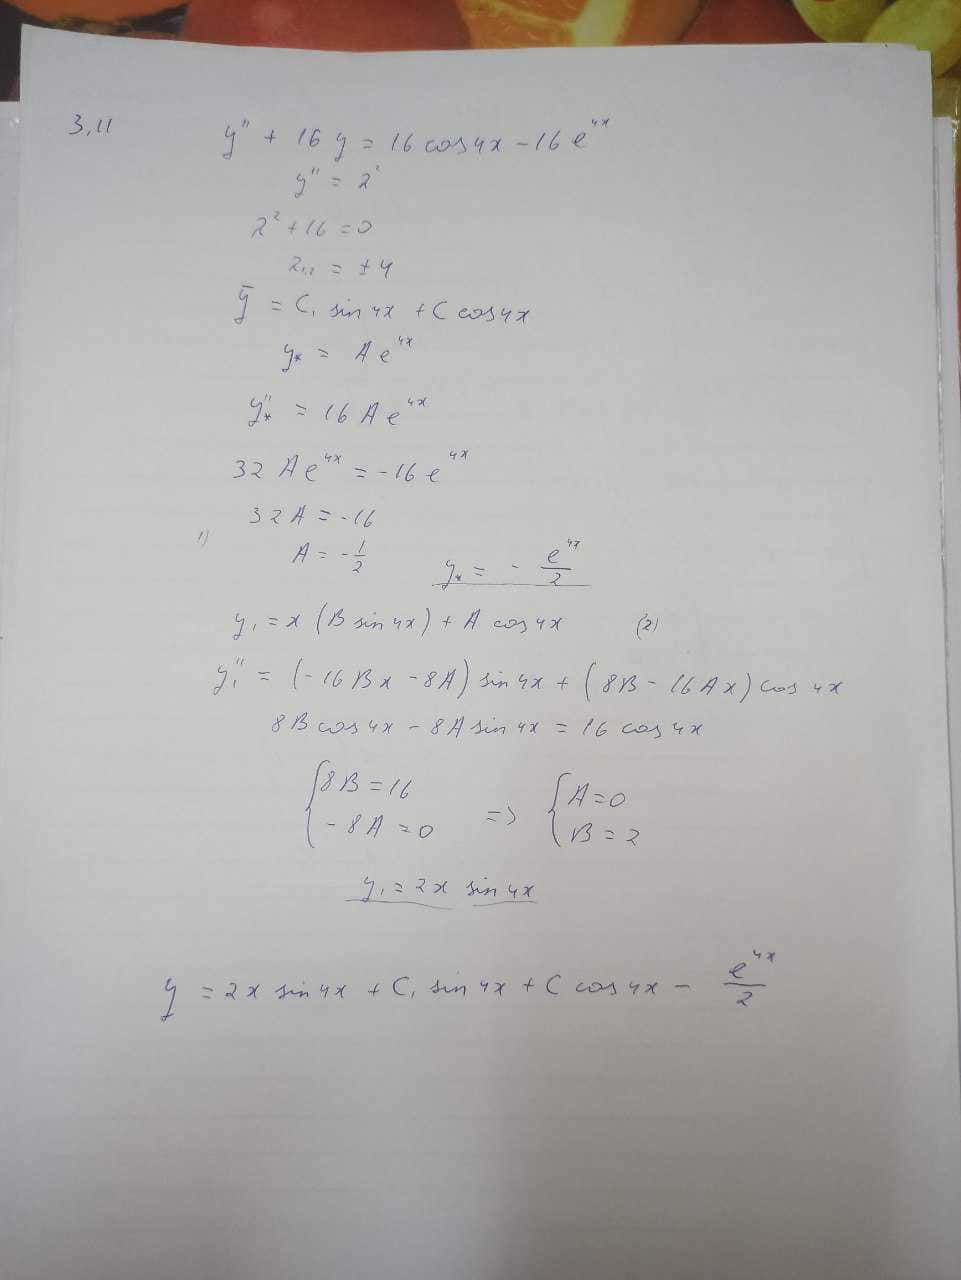 3,11
y'' + 16 y = 16 cos 4x - 16 e^{4x}
y'' = 2^2
2^2 + 16 = 0
2_{1,2} = ± 4
ȳ = C_1 sin 4x + C cos 4x
y_* = A e^{4x}
y''_* = 16 A e^{4x}
32 A e^{4x} = -16 e^{4x}
32 A = -16
1) A = -1/2 y_* = - e^{4x}/2
y_1 = x (B sin 4x) + A cos 4x (2)
y_1'' = (-16 Bx - 8A) sin 4x + (8B - 16 Ax) cos 4x
8B cos 4x - 8A sin 4x = 16 cos 4x
{ 8B = 16 => { A = 0
{ -8A = 0 { B = 2
y_1 = 2x sin 4x
y = 2x sin 4x + C_1 sin 4x + C cos 4x - e^{4x}/2